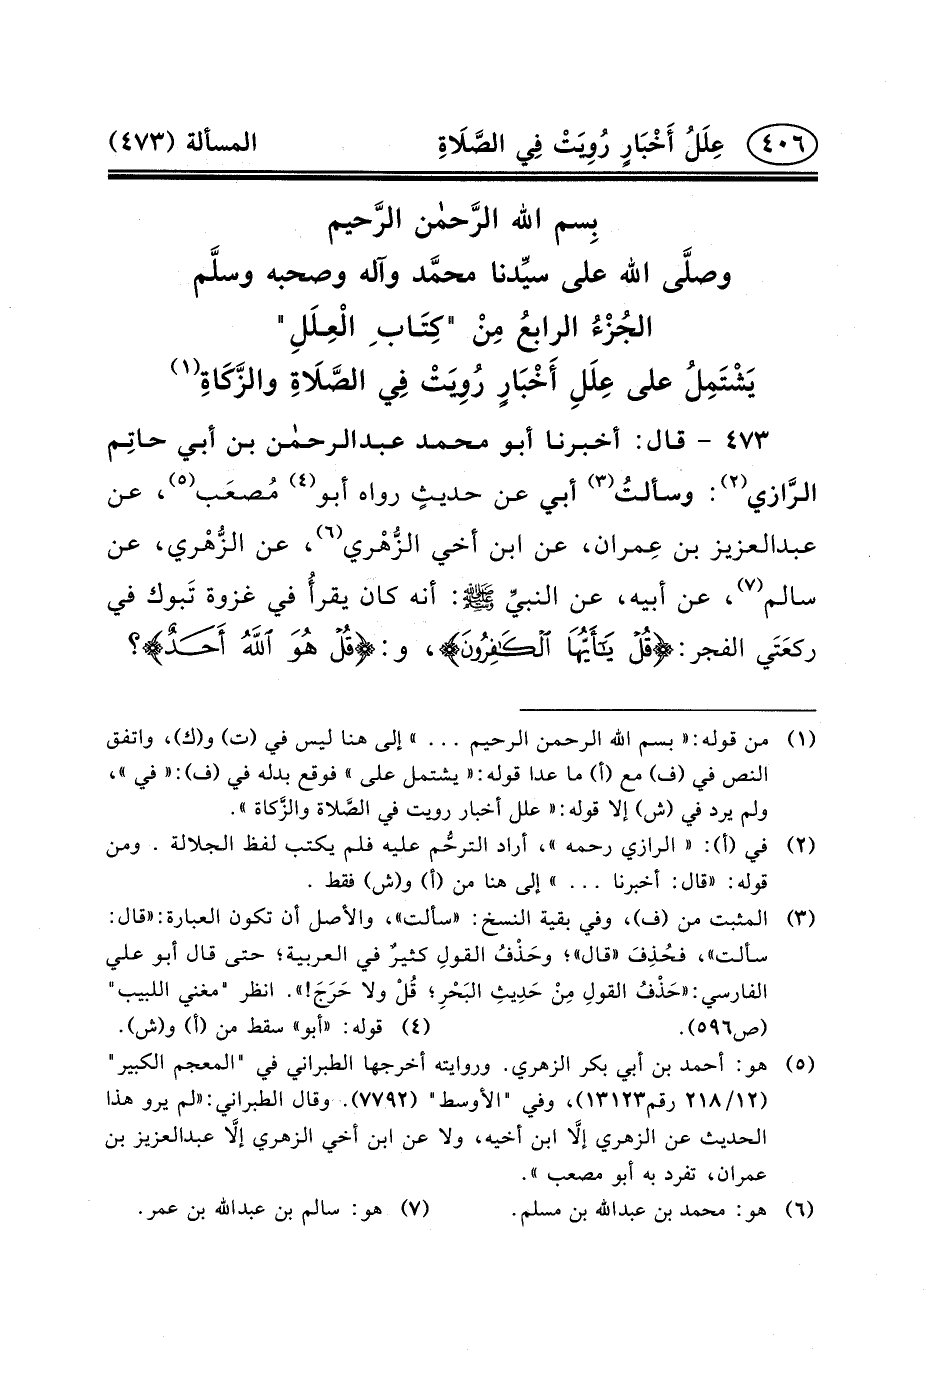 ٤٠٦ عِلَلُ أَخْبَارٍ رُوِيَتْ فِي الصَّلَاةِ المسألة (٤٧٣)
بِسم الله الرَّحمٰن الرَّحيم
وصلَّى الله على سيِّدنا محمَّد وآله وصحبه وسلَّم
الجُزْءُ الرابعُ مِنْ "كِتَابِ الْعِلَلِ"
يَشْتَمِلُ على عِلَلِ أَخْبَارٍ رُوِيَتْ فِي الصَّلَاةِ والزَّكَاةِ(١)
٤٧٣ - قال: أخبرنا أبو محمد عبدالرحمٰن بن أبي حاتِم
الرَّازي(٢): وسألتُ(٣) أبي عن حديثٍ رواه أبو(٤) مُصعَب(٥)، عن
عبدالعزيز بن عِمران، عن ابن أخي الزُّهْري(٦)، عن الزُّهْري، عن
سالم(٧)، عن أبيه، عن النبيِّ ﷺ: أنه كان يقرأُ في غزوة تَبوك في
ركعَتَي الفجر: ﴿قُلْ يَـٰٓأَيُّهَا ٱلْكَـٰفِرُونَ﴾، و: ﴿قُلْ هُوَ ٱللَّهُ أَحَدٌ﴾؟
(١) من قوله:« بسم الله الرحمن الرحيم ... » إلى هنا ليس في (ت) و(ك)، واتفق
النص في (ف) مع (أ) ما عدا قوله:« يشتمل على » فوقع بدله في (ف):« في »،
ولم يرد في (ش) إلا قوله:« علل أخبار رويت في الصَّلاة والزَّكاة ».
(٢) في (أ): « الرازي رحمه »، أراد الترحُّم عليه فلم يكتب لفظ الجلالة . ومن
قوله: «قال: أخبرنا ... » إلى هنا من (أ) و(ش) فقط .
(٣) المثبت من (ف)، وفي بقية النسخ: «سألت»، والأصل أن تكون العبارة:«قال:
سألت»، فحُذِفَ «قال»؛ وحَذْفُ القولِ كثيرٌ في العربية؛ حتى قال أبو علي
الفارسي:«حَذْفُ القولِ مِنْ حَدِيثِ البَحْرِ؛ قُلْ ولا حَرَجَ!». انظر "مغني اللبيب"
(ص٥٩٦). (٤) قوله: «أبو» سقط من (أ) و(ش).
(٥) هو: أحمد بن أبي بكر الزهري. وروايته أخرجها الطبراني في "المعجم الكبير"
(١٢/ ٢١٨ رقم١٣١٢٣)، وفي "الأوسط" (٧٧٩٢). وقال الطبراني:«لم يرو هذا
الحديث عن الزهري إلَّا ابن أخيه، ولا عن ابن أخي الزهري إلَّا عبدالعزيز بن
عمران، تفرد به أبو مصعب ».
(٦) هو: محمد بن عبدالله بن مسلم. (٧) هو: سالم بن عبدالله بن عمر.